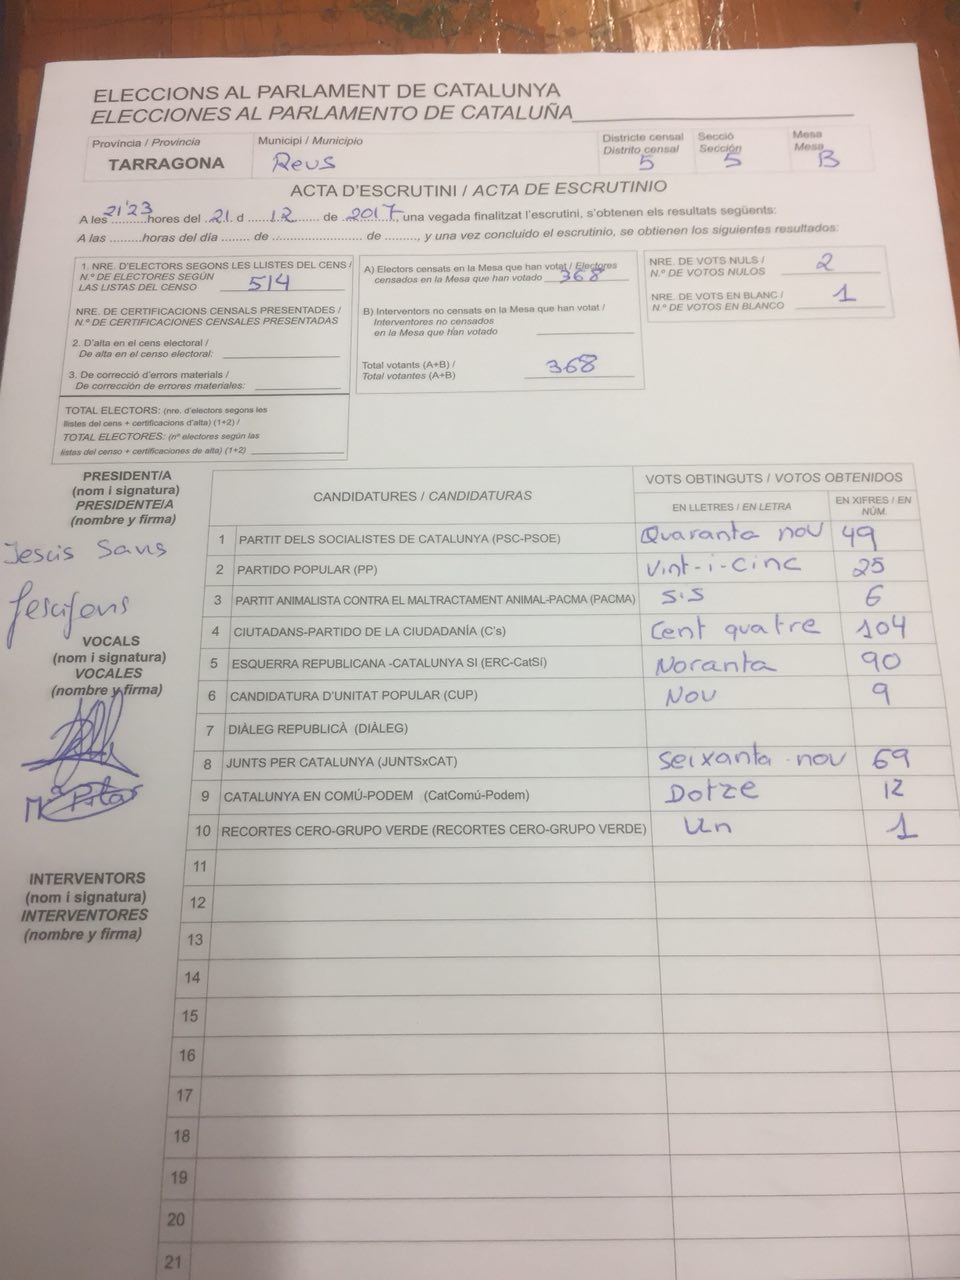 ELECCIONS AL PARLAMENT DE CATALUNYA
ELECCIONES AL PARLAMENTO DE CATALUÑA
Província / Provincia
TARRAGONA
Municipi / Municipio
Reus
Districte censal
Distrito censal
5
Secció
Sección
5
Mesa
Mesa
B
ACTA D'ESCRUTINI / ACTA DE ESCRUTINIO
A les 21'23 hores del 21 d 12 de 2017, una vegada finalitzat l'escrutini, s'obtenen els resultats següents:
A las ......... horas del día ........ de ....................... de ........, y una vez concluido el escrutinio, se obtienen los siguientes resultados:
1. NRE. D'ELECTORS SEGONS LES LLISTES DEL CENS /
N.º DE ELECTORES SEGÚN
LAS LISTAS DEL CENSO 514
NRE. DE CERTIFICACIONS CENSALS PRESENTADES /
N.º DE CERTIFICACIONES CENSALES PRESENTADAS
2. D'alta en el cens electoral /
De alta en el censo electoral:
3. De correcció d'errors materials /
De corrección de errores materiales:
TOTAL ELECTORS: (nre. d'electors segons les
llistes del cens + certificacions d'alta) (1+2) /
TOTAL ELECTORES: (nº electores según las
listas del censo + certificaciones de alta) (1+2)
A) Electors censats en la Mesa que han votat / Electores
censados en la Mesa que han votado 368
B) Interventors no censats en la Mesa que han votat /
Interventores no censados
en la Mesa que han votado
Total votants (A+B) /
Total votantes (A+B) 368
NRE. DE VOTS NULS /
N.º DE VOTOS NULOS 2
NRE. DE VOTS EN BLANC /
N.º DE VOTOS EN BLANCO 1
PRESIDENT/A
(nom i signatura)
PRESIDENTE/A
(nombre y firma)
Jesús Sans
VOCALS
(nom i signatura)
VOCALES
(nombre y firma)
Mª Pilar
INTERVENTORS
(nom i signatura)
INTERVENTORES
(nombre y firma)
CANDIDATURES / CANDIDATURAS
VOTS OBTINGUTS / VOTOS OBTENIDOS
EN LLETRES / EN LETRA
EN XIFRES / EN
NÚM.
1 PARTIT DELS SOCIALISTES DE CATALUNYA (PSC-PSOE) Quaranta nou 49
2 PARTIDO POPULAR (PP) Vint-i-cinc 25
3 PARTIT ANIMALISTA CONTRA EL MALTRACTAMENT ANIMAL-PACMA (PACMA) sis 6
4 CIUTADANS-PARTIDO DE LA CIUDADANÍA (C's) Cent quatre 104
5 ESQUERRA REPUBLICANA -CATALUNYA SÍ (ERC-CatSí) Noranta 90
6 CANDIDATURA D'UNITAT POPULAR (CUP) Nou 9
7 DIÀLEG REPUBLICÀ (DIÀLEG)
8 JUNTS PER CATALUNYA (JUNTSxCAT) Seixanta-nou 69
9 CATALUNYA EN COMÚ-PODEM (CatComú-Podem) Dotze 12
10 RECORTES CERO-GRUPO VERDE (RECORTES CERO-GRUPO VERDE) Un 1
11
12
13
14
15
16
17
18
19
20
21